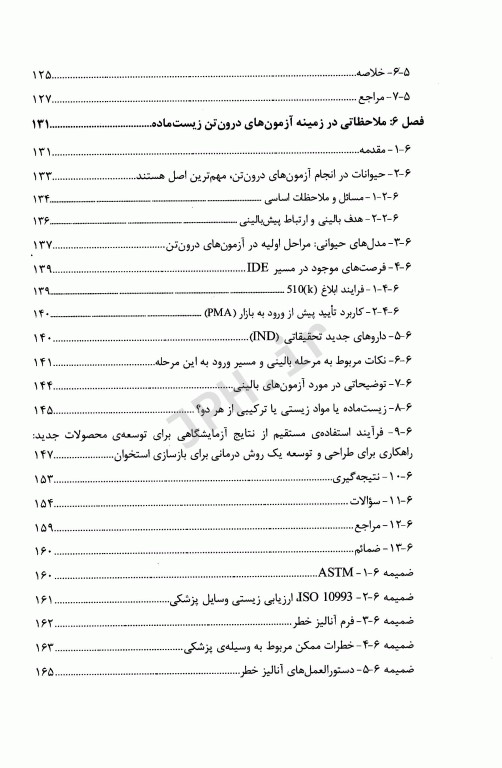 ۵-۶- خلاصه ۱۲۵
۵-۷- مراجع ۱۲۷
فصل ۶: ملاحظاتی در زمینه آزمون‌های درون‌تن زیست‌ماده ۱۳۱
۶-۱- مقدمه ۱۳۱
۶-۲- حیوانات در انجام آزمون‌های درون‌تن، مهم‌ترین اصل هستند ۱۳۳
۶-۲-۱- مسائل و ملاحظات اساسی ۱۳۴
۶-۲-۲- هدف بالینی و ارتباط پیش‌بالینی ۱۳۶
۶-۳- مدل‌های حیوانی: مراحل اولیه در آزمون‌های درون‌تن ۱۳۷
۶-۴- فرصت‌های موجود در مسیر IDE ۱۳۹
۶-۴-۱- فرایند ابلاغ 510(k) ۱۳۹
۶-۴-۲- کاربرد تأیید پیش از ورود به بازار (PMA) ۱۴۰
۶-۵- داروهای جدید تحقیقاتی (IND) ۱۴۰
۶-۶- نکات مربوط به مرحله بالینی و مسیر ورود به این مرحله ۱۴۱
۶-۷- توضیحاتی در مورد آزمون‌های بالینی ۱۴۴
۶-۸- زیست‌ماده یا مواد زیستی یا ترکیبی از هر دو؟ ۱۴۵
۶-۹- فرآیند استفاده‌ی مستقیم از نتایج آزمایشگاهی برای توسعه‌ی محصولات جدید:
راهکاری برای طراحی و توسعه یک روش درمانی برای بازسازی استخوان ۱۴۷
۶-۱۰- نتیجه‌گیری ۱۵۳
۶-۱۱- سؤالات ۱۵۴
۶-۱۲- مراجع ۱۵۹
۶-۱۳- ضمائم ۱۶۰
ضمیمه ۶-۱- ASTM ۱۶۰
ضمیمه ۶-۲- ISO 10993، ارزیابی زیستی وسایل پزشکی ۱۶۱
ضمیمه ۶-۳- فرم آنالیز خطر ۱۶۲
ضمیمه ۶-۴- خطرات ممکن مربوط به وسیله‌ی پزشکی ۱۶۳
ضمیمه ۶-۵- دستورالعمل‌های آنالیز خطر ۱۶۵
JPH.ir